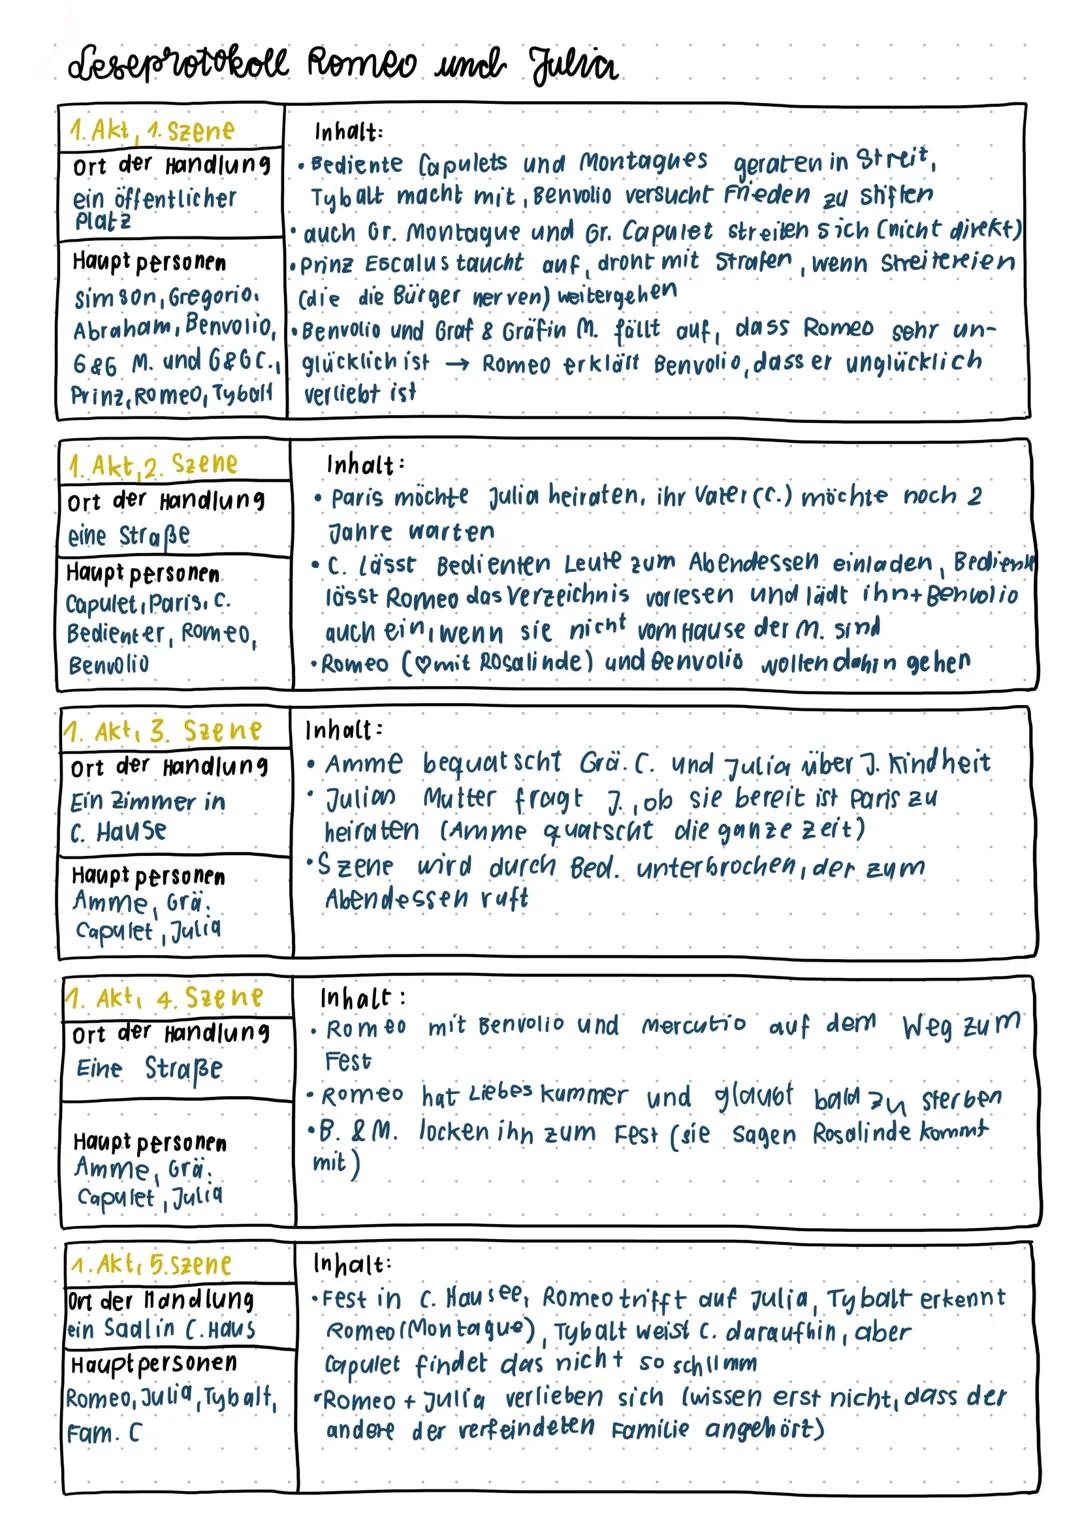 Leseprotokoll Romeo und Julia
1. Akt, 1. Szene
Ort der Handlung
ein öffentlicher
Platz
Hauptpersonen
Simson, Gregorio,
Abraham, Benvolio,
G&G M. und G&G C.,
Prinz, Romeo, Tybalt
Inhalt:
• Bediente Capulets und Montagues geraten in Streit,
Tybalt macht mit, Benvolio versucht Frieden zu stiften
• auch Gr. Montague und Gr. Capulet streiten sich (nicht direkt)
• Prinz Escalus taucht auf, droht mit Strafen, wenn Streitereien
(die die Bürger nerven) weitergehen
• Benvolio und Graf & Gräfin M. fällt auf, dass Romeo sehr un-
glücklich ist → Romeo erklärt Benvolio, dass er unglücklich
verliebt ist
1. Akt, 2. Szene
Ort der Handlung
eine Straße
Hauptpersonen
Capulet, Paris, C.
Bedienter, Romeo,
Benvolio
Inhalt:
• Paris möchte Julia heiraten, ihr Vater (C.) möchte noch 2
Jahre warten
• C. lässt Bedienten Leute zum Abendessen einladen, Bediente
lässt Romeo das Verzeichnis vorlesen und lädt ihn + Benvolio
auch ein, wenn sie nicht vom Hause der M. sind
• Romeo (♡ mit Rosalinde) und Benvolio wollen dahin gehen
1. Akt, 3. Szene
Ort der Handlung
Ein Zimmer in
C. Hause
Hauptpersonen
Amme, Grä.
Capulet, Julia
Inhalt:
• Amme bequatscht Grä. C. und Julia über J. Kindheit
• Julias Mutter fragt J., ob sie bereit ist Paris zu
heiraten (Amme quatscht die ganze Zeit)
• Szene wird durch Bed. unterbrochen, der zum
Abendessen ruft
1. Akt, 4. Szene
Ort der Handlung
Eine Straße
Hauptpersonen
Amme, Grä.
Capulet, Julia
Inhalt:
• Romeo mit Benvolio und Mercutio auf dem Weg zum
Fest
• Romeo hat Liebeskummer und glaubt bald zu sterben
• B. & M. locken ihn zum Fest (sie sagen Rosalinde kommt
mit)
1. Akt, 5. Szene
Ort der Handlung
ein Saal in C. Haus
Hauptpersonen
Romeo, Julia, Tybalt,
Fam. C
Inhalt:
• Fest in C. Hausee, Romeo trifft auf Julia, Tybalt erkennt
Romeo (Montague), Tybalt weist C. daraufhin, aber
Capulet findet das nicht so schlimm
• Romeo + Julia verlieben sich (wissen erst nicht, dass der
andere der verfeindeten Familie angehört)